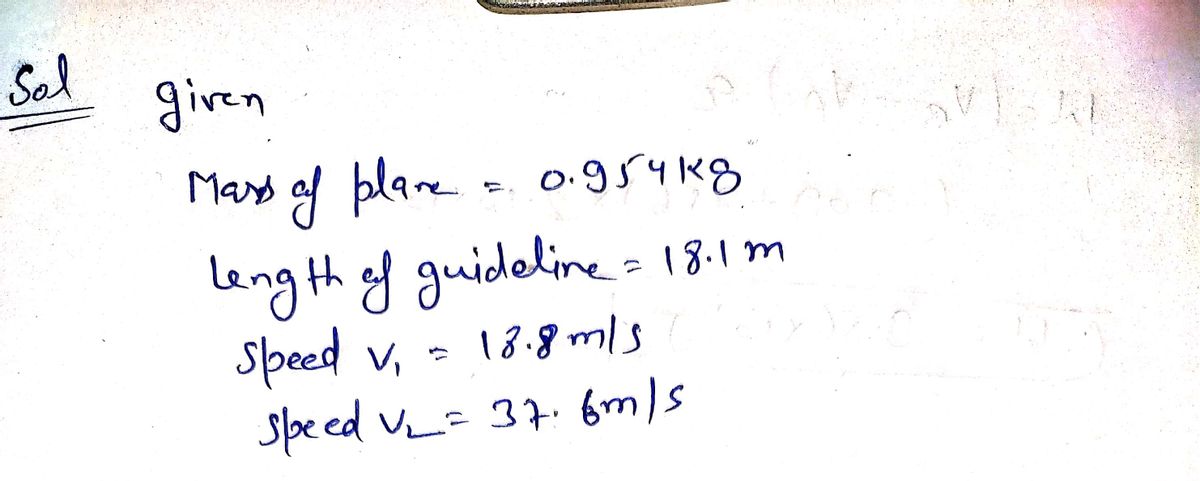 Sol given
Mass of plane = 0.954 kg
Length of guideline = 18.1 m
Speed V₁ = 18.8 m/s
Speed V₂ = 37.6 m/s